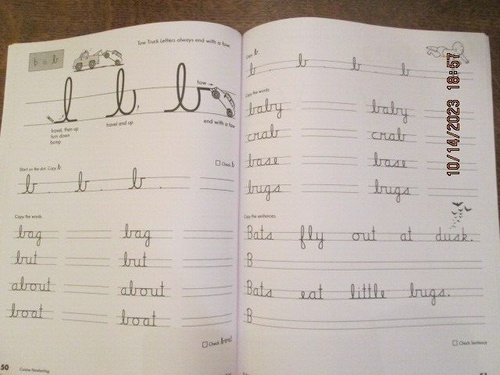 b = b
Tow Truck Letters always end with a tow.
b b b
tow
travel, then up
turn down
bump
travel and up
end with a tow
Start on the dot. Copy b.
b . b . b .
Check b
Copy the words.
bag bag
but but
about about
boat boat
Check
50 Cursive Handwriting
Copy b.
b b b b
Copy the words.
baby baby
crab crab
base base
bugs bugs
Copy the sentences.
Bats fly out at dusk.
B
Bats eat little bugs.
B
Check Sentence
10/14/2023 18:57